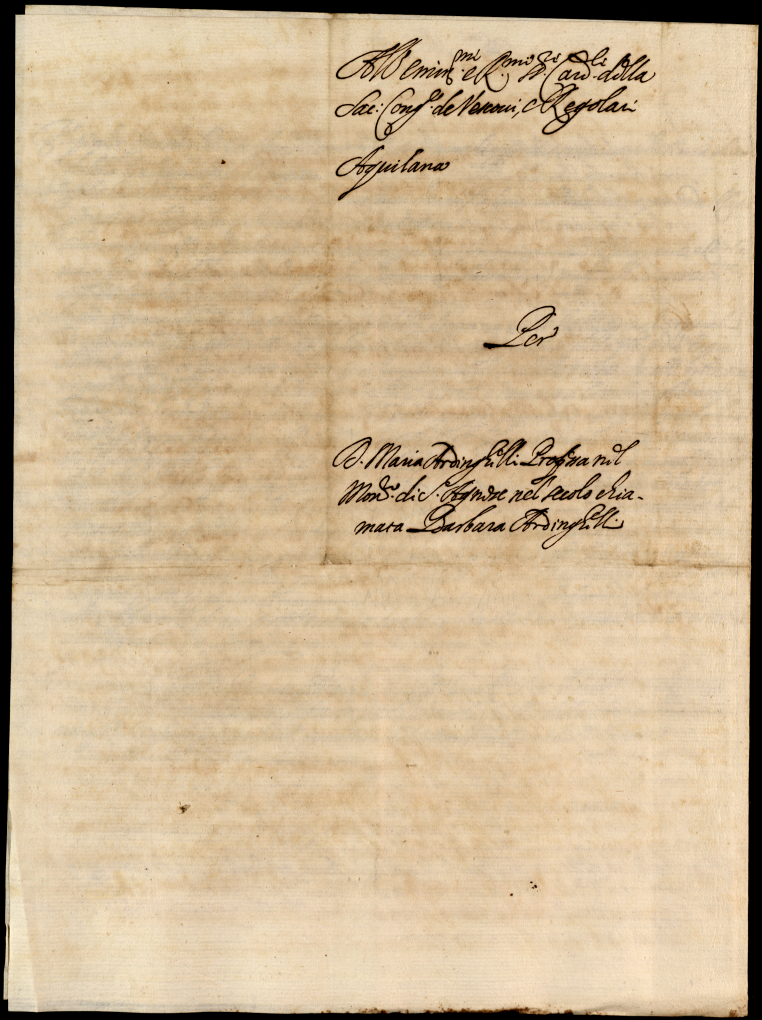 All Emin.mi e R.mi S.ri Card.li della
Sac: Cong.e de Vescovi, e Regolari
Aquilana
Per
D. Maria Ardinghelli Professa nel
Mon.ro di S. Agnese nel secolo chia-
mata Barbara Ardinghelli